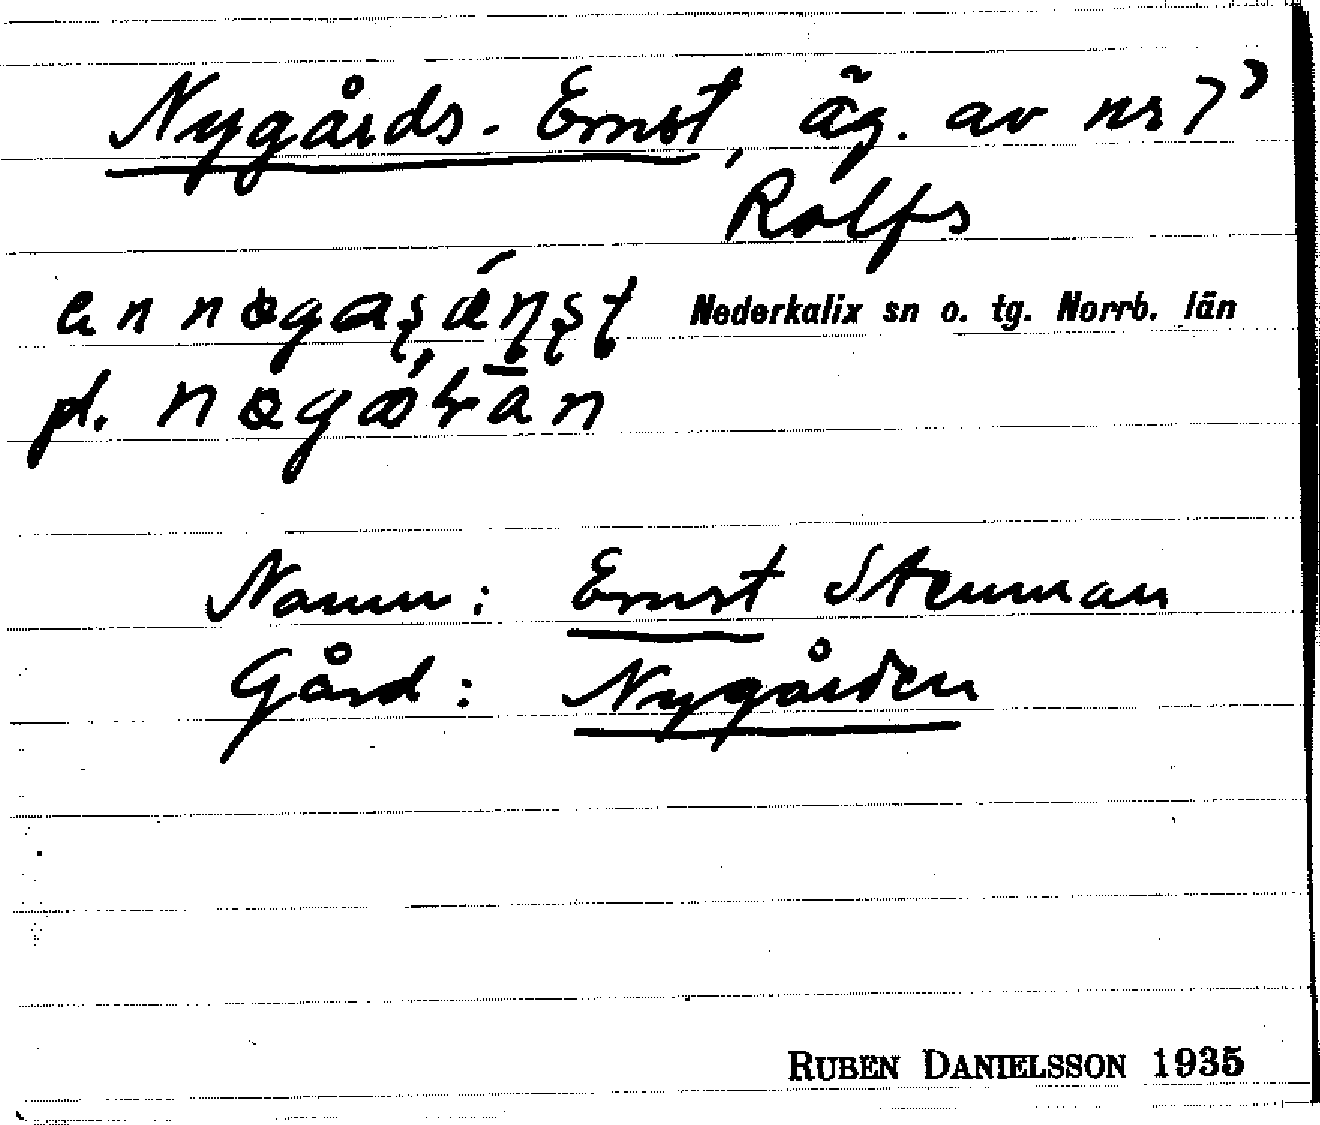 Nygårds-Ernst, äg. av nr 7³
Rolfs
Nederkalix sn o. tg. Norrb. län
pl.
Namn: Ernst Stenman
Gård: Nygården
RUBEN DANIELSSON 1935